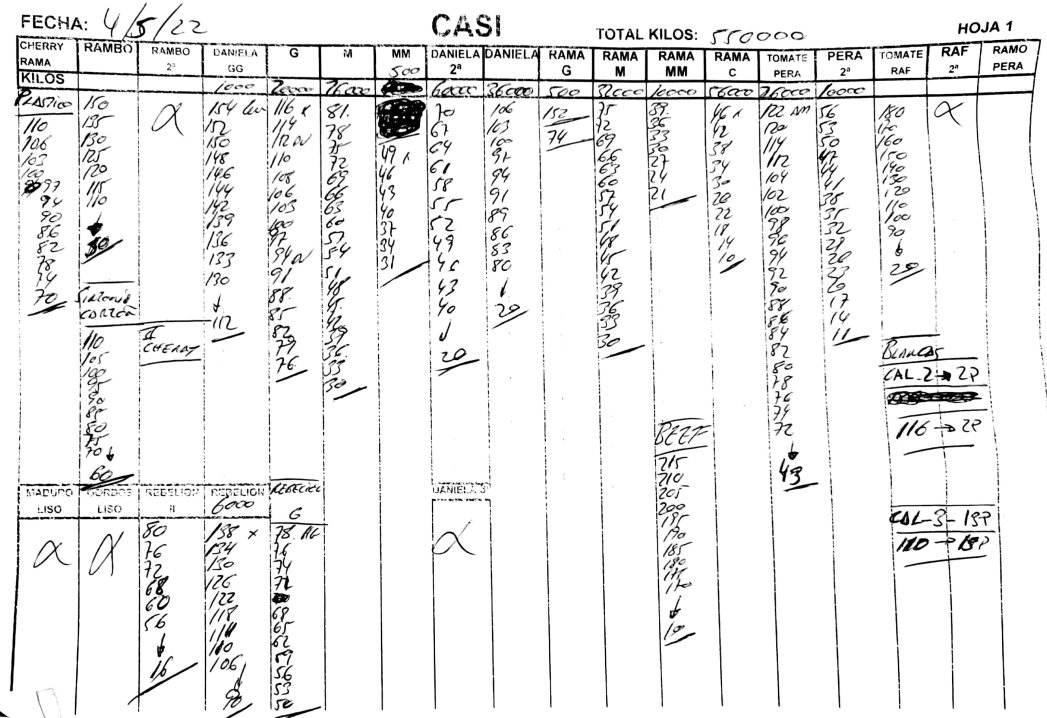 FECHA: 4/5/22 CASI TOTAL KILOS: 550000 HOJA 1
CHERRY RAMBO RAMBO DANIELA G M MM DANIELA DANIELA RAMA RAMA RAMA RAMA TOMATE PERA TOMATE RAF RAMO
RAMA 2ª GG 500 2ª G M MM C PERA 2ª RAF 2ª PERA
KILOS
1000 26000 6000 36000 500 32000 10000 56000 26000 10000
PLASTICO
110
106
103
100
97
94
90
86
82
78
74
70
150
135
130
125
120
115
110
30
CORAZON
110
105
100
95
90
85
80
75
70
60
α
II
CHERRY
154
152
150
148
146
144
142
139
136
133
130
112
116 x
114
112
110
108
106
103
100
97
94
91
88
85
82
79
76
81
78
75
72
69
66
63
60
57
54
51
48
45
42
39
36
33
30
49 x
46
43
40
37
34
31
70
67
64
61
58
55
52
49
46
43
40
20
106
103
100
97
94
91
89
86
83
80
20
152
74
75
72
69
66
63
60
57
54
51
48
45
42
39
36
33
30
39
36
33
30
27
24
21
BEEF
215
210
205
200
195
190
185
180
175
170
10
46 x
42
38
34
30
26
22
18
14
10
122
120
114
112
104
102
100
98
96
94
92
90
88
86
84
82
80
78
76
74
72
43
56
53
50
47
44
41
38
35
32
29
26
23
20
17
14
11
180
170
160
150
140
130
120
110
100
90
20
α
BLANCAS
CAL-2 → 2P
116 → 2P
CAL-3-1ªP
110 → 1ªP
MADURO GORDOS REBELION REBELION REBELION DANIELA 3ª
LISO LISO II 6000 G
α
α
80
76
72
68
60
56
16
138 x
134
130
126
122
118
114
110
106
90
78
76
74
72
68
65
62
59
56
53
50
α